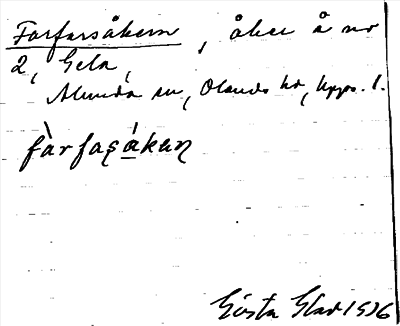 Farfarsåkern, åker å nr
2, Gela,
Alunda sn, Olands hd, Upps. l.
fàrfaşákaɳ
Gösta Glad 1936